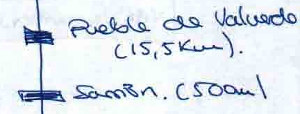 Pueble de Valverde
(15,5Km).
Sarrión. (500m)